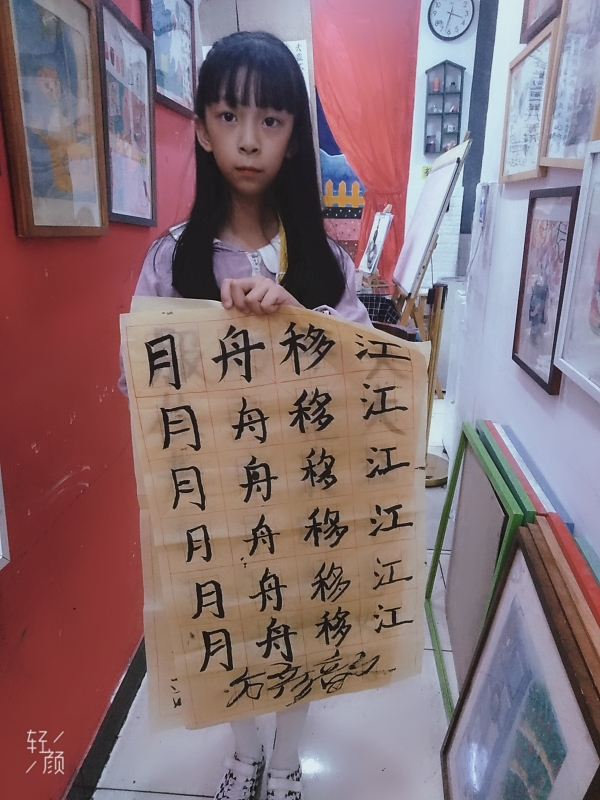 江江江江江江
移移移移移移
舟舟舟舟舟舟
月月月月月月
轻颜